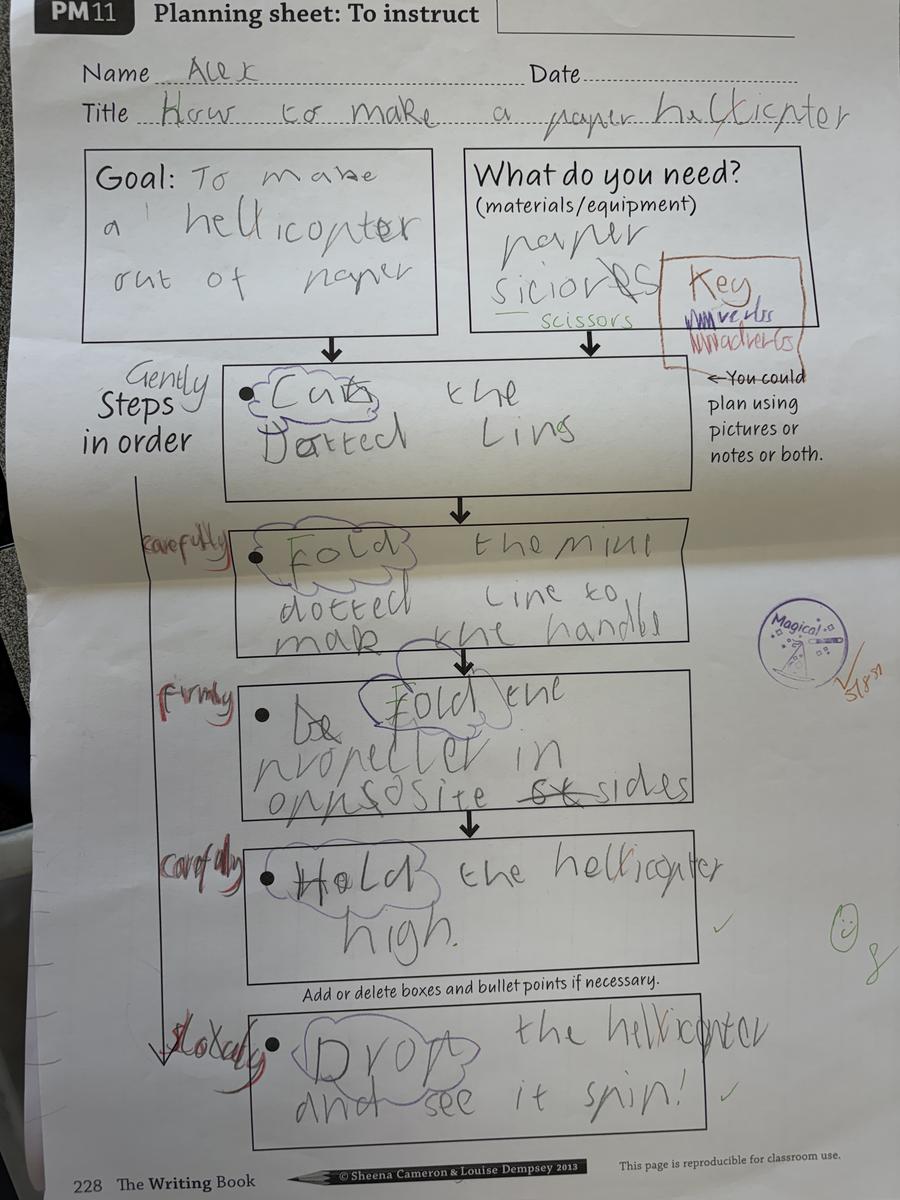 PM11 Planning sheet: To instruct
Name Alex Date
Title How to make a paper hellicpter
Goal: To make
a hellicopter
out of paper
What do you need?
(materials/equipment)
paper
siciors
scissors
Key
verbs
adverbs
Gently
Steps
in order
Cut the
Dotted Line
←You could
plan using
pictures or
notes or both.
carefully
Fold the mini
dotted Line to
mak the handle
firmly
Fold the
propeller in
oppsosite sides
carefuly
Hold the hellicopter
high.
Add or delete boxes and bullet points if necessary.
Drop the hellicopter
and see it spin!
Magical
228 The Writing Book
© Sheena Cameron & Louise Dempsey 2013
This page is reproducible for classroom use.